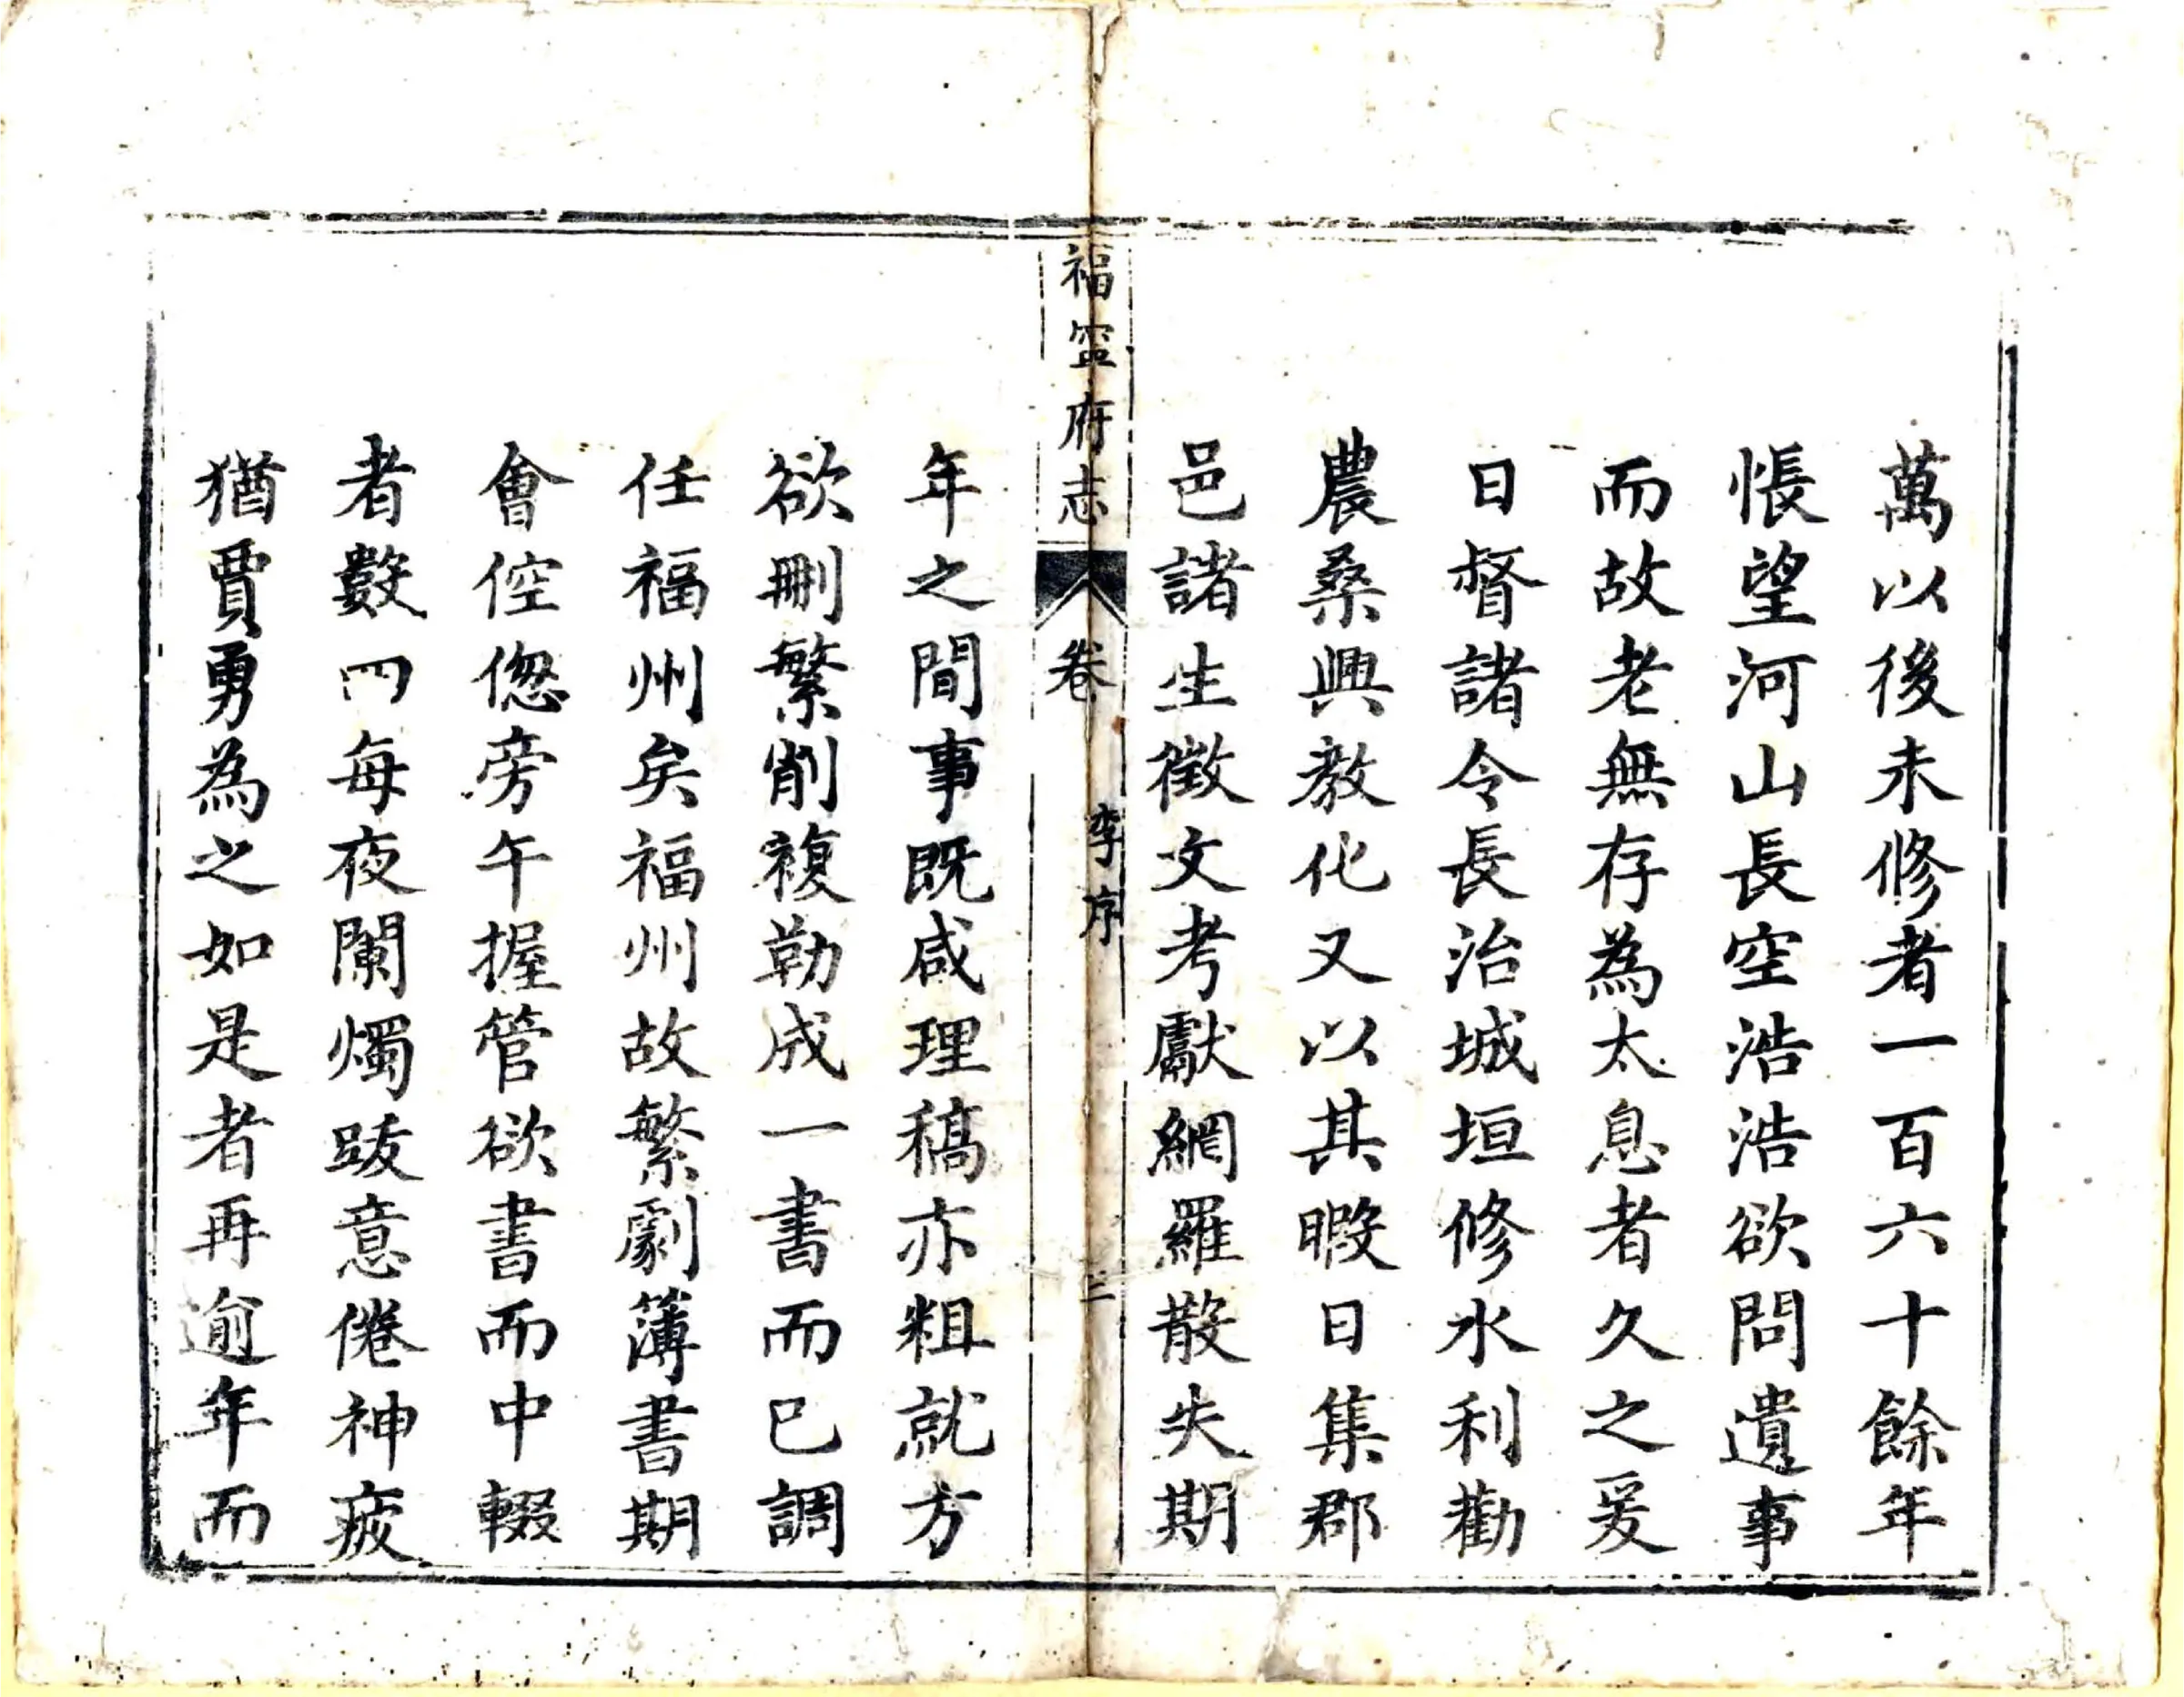 萬以後未修者一百六十餘年
悵望河山長空浩浩欲問遺事
而故老無存為太息者久之爰
日督諸令長治城垣修水利勸
農桑興教化又以其暇日集郡
邑諸生徵文考獻網羅散失期
福寍府志
卷
李序
三
年之間事既咸理稿亦粗就方
欲刪繁削複勒成一書而已調
任福州矣福州故繁劇簿書期
會倥偬旁午握管欲書而中輟
者數四每夜闌燭跋意倦神疲
猶賈勇為之如是者再逾年而